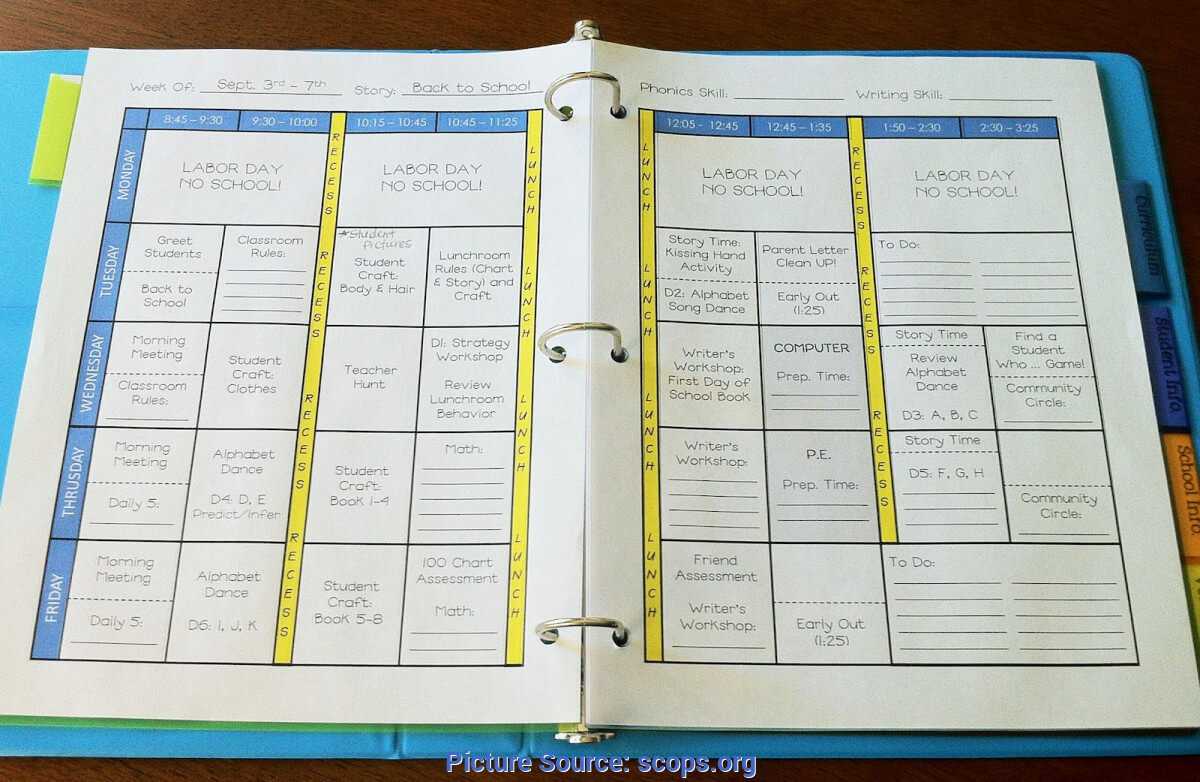 Week Of: Sept. 3rd - 7th Story: Back to School
8:45 – 9:30 9:30 – 10:00 10:15 – 10:45 10:45 – 11:25
MONDAY
LABOR DAY
NO SCHOOL!
RECESS
LABOR DAY
NO SCHOOL!
LUNCH
TUESDAY
Greet
Students
Back to
School
Classroom
Rules:
RECESS
*Student
Pictures
Student
Craft:
Body & Hair
Lunchroom
Rules (Chart
& Story) and
Craft
LUNCH
WEDNESDAY
Morning
Meeting
Classroom
Rules:
Student
Craft:
Clothes
RECESS
Teacher
Hunt
D1: Strategy
Workshop
Review
Lunchroom
Behavior
LUNCH
THRUSDAY
Morning
Meeting
Daily 5:
Alphabet
Dance
D4: D, E
Predict/Infer
Student
Craft:
Book 1-4
Math:
FRIDAY
Morning
Meeting
Daily 5:
Alphabet
Dance
D6: I, J, K
RECESS
Student
Craft:
Book 5-8
100 Chart
Assessment
Math:
LUNCH
Phonics Skill: Writing Skill:
12:05 - 12:45 12:45 - 1:35 1:50 - 2:30 2:30 - 3:25
LUNCH
LABOR DAY
NO SCHOOL!
RECESS
LABOR DAY
NO SCHOOL!
LUNCH
Story Time:
Kissing Hand
Activity
D2: Alphabet
Song Dance
Parent Letter
Clean UP!
Early Out
(1:25)
RECESS
To Do:
LUNCH
Writer's
Workshop:
First Day of
School Book
COMPUTER
Prep. Time:
Story Time
Review
Alphabet
Dance
D3: A, B, C
Find a
Student
Who ... Game!
Community
Circle:
Writer's
Workshop:
P.E.
Prep. Time:
RECESS
Story Time
D5: F, G, H
Community
Circle:
LUNCH
Friend
Assessment
Writer's
Workshop:
Early Out
(1:25)
To Do:
Curriculum
Student Info.
School Info.
Picture Source: scops.org